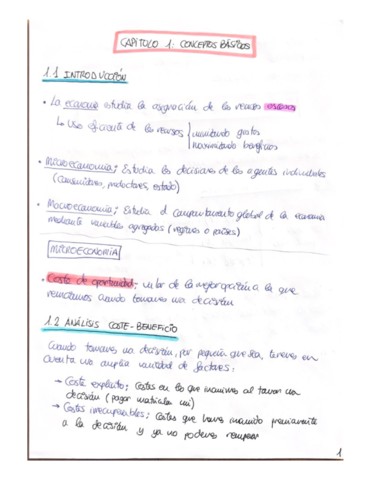 CAPÍTULO 1: CONCEPTOS BÁSICOS
1.1 INTRODUCCIÓN
• La economía estudia la asignación de los recursos escasos
↳ Uso eficiente de los recursos { minimizando gastos
maximizando beneficios
• Microeconomía; Estudia las decisiones de los agentes individuales
(consumidores, productores, estado)
• Macroeconomía; Estudia el comportamiento global de la economía
mediante variables agregadas (regiones o países)
MICROECONOMÍA
• Coste de oportunidad; valor de la mejor opción a la que
renunciamos cuando tomamos una decisión
1.2 ANÁLISIS COSTE-BENEFICIO
Cuando tomamos una decisión, por pequeña que sea, tenemos en
cuenta una amplia variedad de factores:
→ Coste explícito; Costes en los que incurrimos al tomar una
decisión (pagar matrícula uni)
→ Costes irrecuperables; Costes que hemos incurrido previamente
a la decisión y ya no podemos recuperar
1